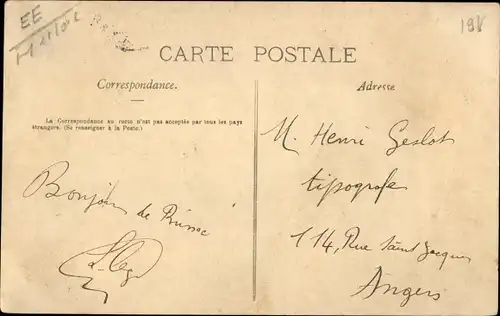 EE
198
CARTE POSTALE
Correspondance.
Adresse
La Correspondance au recto n'est pas acceptée par tous les pays
étrangers. (Se renseigner à la Poste.)
Bonjour de
M. Henri Geslot
tipografe
114, Rue Saint Jacques
Angers